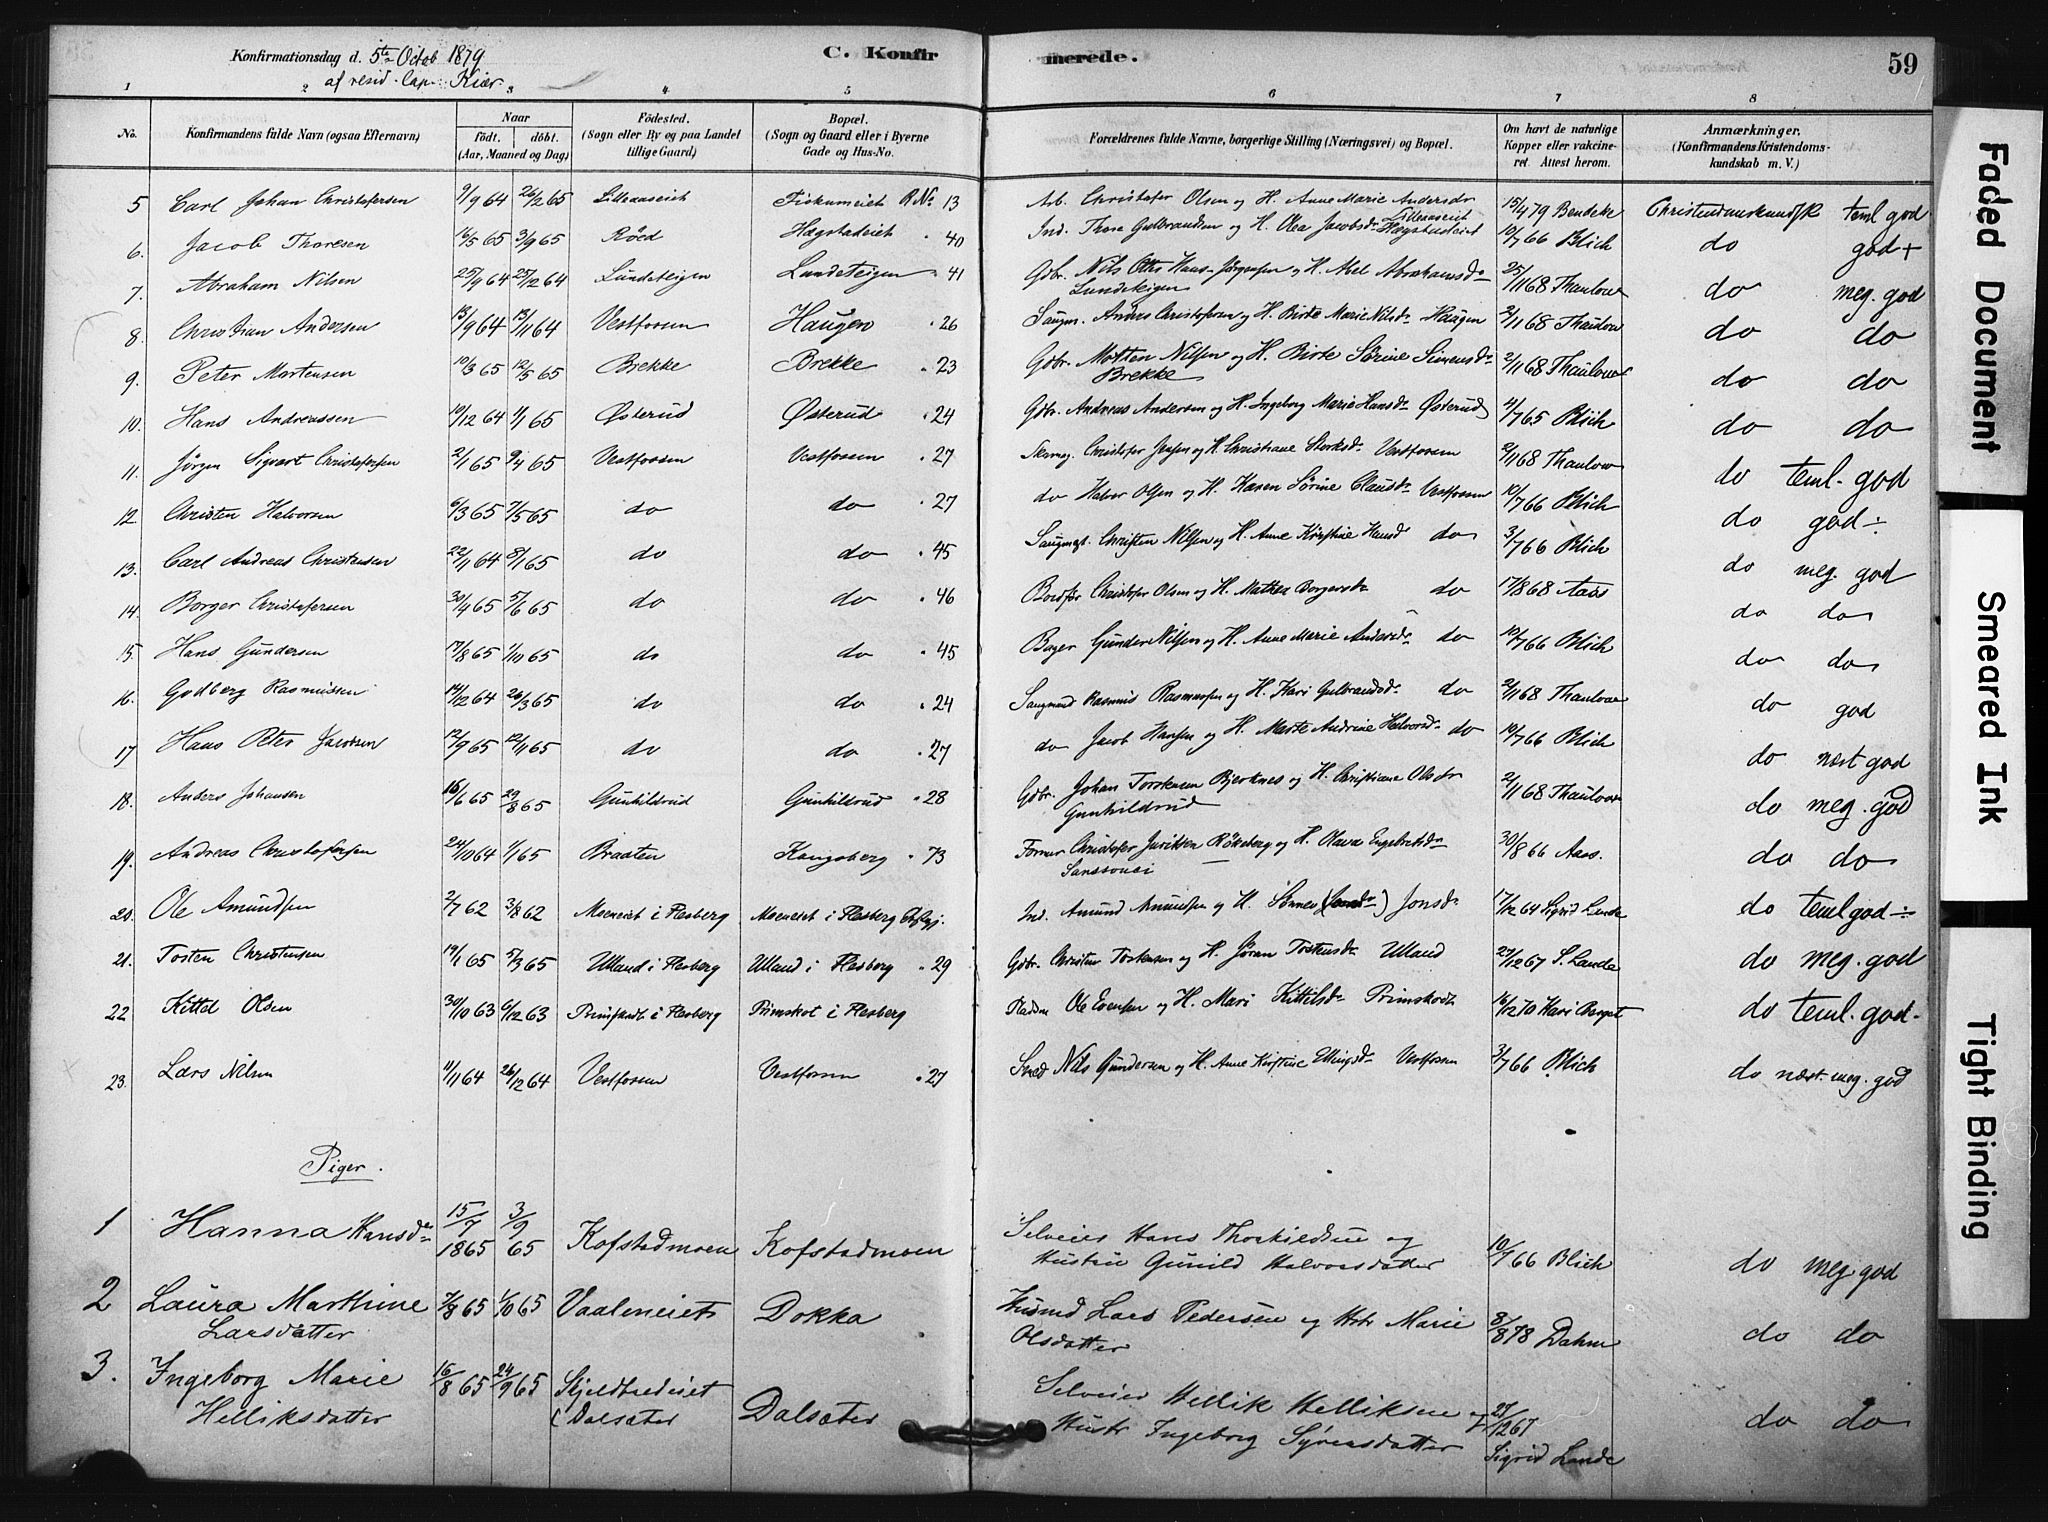 Konfirmationsdag d. 5te Octob 1879 C. Konfirmerede. 59
af resid. Cap. Kiær.
1 2 3 4 5 6 7 8
No. Konfirmandens fulde Navn (ogsaa Efternavn) Naar født. døbt. (Aar, Maaned og Dag) Fødested. (Sogn eller By og paa Landet tillige Gaard) Bopæl. (Sogn og Gaard eller i Byerne Gade og Hus-No. Forældrenes fulde Navne, borgerlige Stilling (Næringsvei) og Bopæl. Om havt de naturlige Kopper eller vakcineret. Attest herom. Anmærkninger. (Konfirmandens Kristendomskundskab m. V.)
5 Carl Johan Christofersen 9/9 64 26/2 65 Lilleaaseiet Fiskumeiet R.No. 13 Arb. Christofer Olsen og H. Anne Marie Andersdr Lilleaaseiet 15/4 79 Bendeke Christendomskundsk teml god
6. Jacob Thoresen 16/5 65 3/9 65 Røed Hægstadeiet " 40 Ind. Thore Gulbrandsen og H. Olea Jacobsdr Hægstadeiet 10/7 66 Blich do god+
7. Abraham Nilsen 25/9 64 25/12 64 Lundeteigen Lundeteigen " 41 Gdbr. Nils Otto Hans-Jørgensen og H. Abel Abrahamsdr Lundeteigen 25/11 68 Thaulow do meg. god
8. Christian Andersen 13/9 64 13/11 64 Vestfossen Haugen " 26 Saugm. Anders Christofersen og H. Birte Marie Nilsdr Haugen 2/11 68 Thaulow do do
9. Peter Mortensen 10/3 65 12/5 65 Brekke Brekke " 23 Gdbr. Morten Nilsen og H. Birte Sørine Simensdr Brekke 2/11 68 Thaulow do do
10. Hans Andreassen 10/12 64 1/1 65 Østerud Østerud " 24 Gdbr. Andreas Andersen og H. Ingeborg Marie Hansdr Østerud 4/7 65 Blich do do
11. Jørgen Sigvart Christofersen 2/1 65 9/4 65 Vestfossen Vestfossen " 27 Christofer Jensen og H. Christiane Storksdr Vestfossen 2/11 68 Thaulow do teml. god
12 Christen Halvorsen 6/3 65 7/5 65 do do " 27 do Halvor Olsen og H. Karen Sørine Clausdr Vestfossen 10/7 66 Blich do god ÷
13. Carl Andreas Christensen 22/11 64 8/1 65 do do " 45 Saugmst. Christen Nilsen og H. Anne Kirstine Hansd do 3/7 66 Blich do meg. god
14. Borger Christofersen 30/4 65 5/6 65 do do " 46 Christofer Olsen og H. Mathea Borgersdr do 17/8 68 Aass do do
15. Hans Gundersen 17/8 65 1/10 65 do do " 45 Bager Gunder Nilsen og H. Anne Marie Andersdr do 10/7 66 Blich do do
16. Godberg Rasmussen 14/12 64 26/3 65 do do " 24 Saugmand Rasmus Rasmussen og H. Kari Gulbrandsdr do 2/11 68 Thaulow do god
17 Hans Peter Jacobsen 12/9 65 12/11 65 do do " 27 do Jacob Hansen og H. Marte Andrine Halvorsdr do 10/7 66 Blich do næst god
18. Anders Johansen 16/6 65 29/8 65 Gunhildrud Gunhildrud " 28 Gdbr. Johan Torstensen Bjerknes og H. Christiane Olsdr Gunhildrud 2/11 68 Thaulow do meg. god
19. Andreas Christofersen 24/10 64 1/1 65 Braaten Kongsberg " 73 Former Christofer Røkeberg og H. Olava Engebretsdr Sanssouci 30/8 66 Aass. do do
20. Ole Amundsen 2/7 62 3/8 62 Moeneiet i Flesberg Moeneiet i Flesberg Ind. Amund Amundsen og H. Jonsdr 17/12 64 Sigrid Lande do teml god ÷
21. Tosten Christensen 19/1 65 5/3 65 Ulland i Flesberg Ulland i Flesberg " 29 Gdbr. Christen Tostensen og H. Jøran Tostensdr Ulland 27/12 67 S. Lande do meg. god
22 Kittel Olsen 30/10 63 6/12 63 Primskot i Flesberg Primskot i Flesberg Pladsm Ole Evensen og H. Mari Kittilsdr Primskot 16/12 70 Kari do teml. god.
23. Lars Nilsen 11/11 64 26/12 64 Vestfossen Vestfossen " 27 Smed Nils Gundersen og H. Anne Kirstine Ellingsdr Vestfossen 3/7 66 Blich do næst. meg. god
Piger.
1 Hanna Hansdr 15/7 1865 3/9 65 Kofstadmoen Kofstadmoen Selveier Hans Thorkildsen og Hustru Gunild Halvorsdatter 10/7 66 Blich do meg god
2 Laura Marthine Larsdatter 7/8 65 1/10 65 Vaaleneiet Dokka Husmd Lars Pedersen og Hstr Marie Olsdatter 8/8 78 Dahm do do
3. Ingeborg Marie Helliksdatter 16/8 65 24/9 65 Skjeldbredeiet (Dalsæter Dalsæter Selveier Hellik Helliksen og Hustr Ingeborg Syversdatter 27/12 67 Sigrid Lande do do
Faded Document
Smeared Ink
Tight Binding